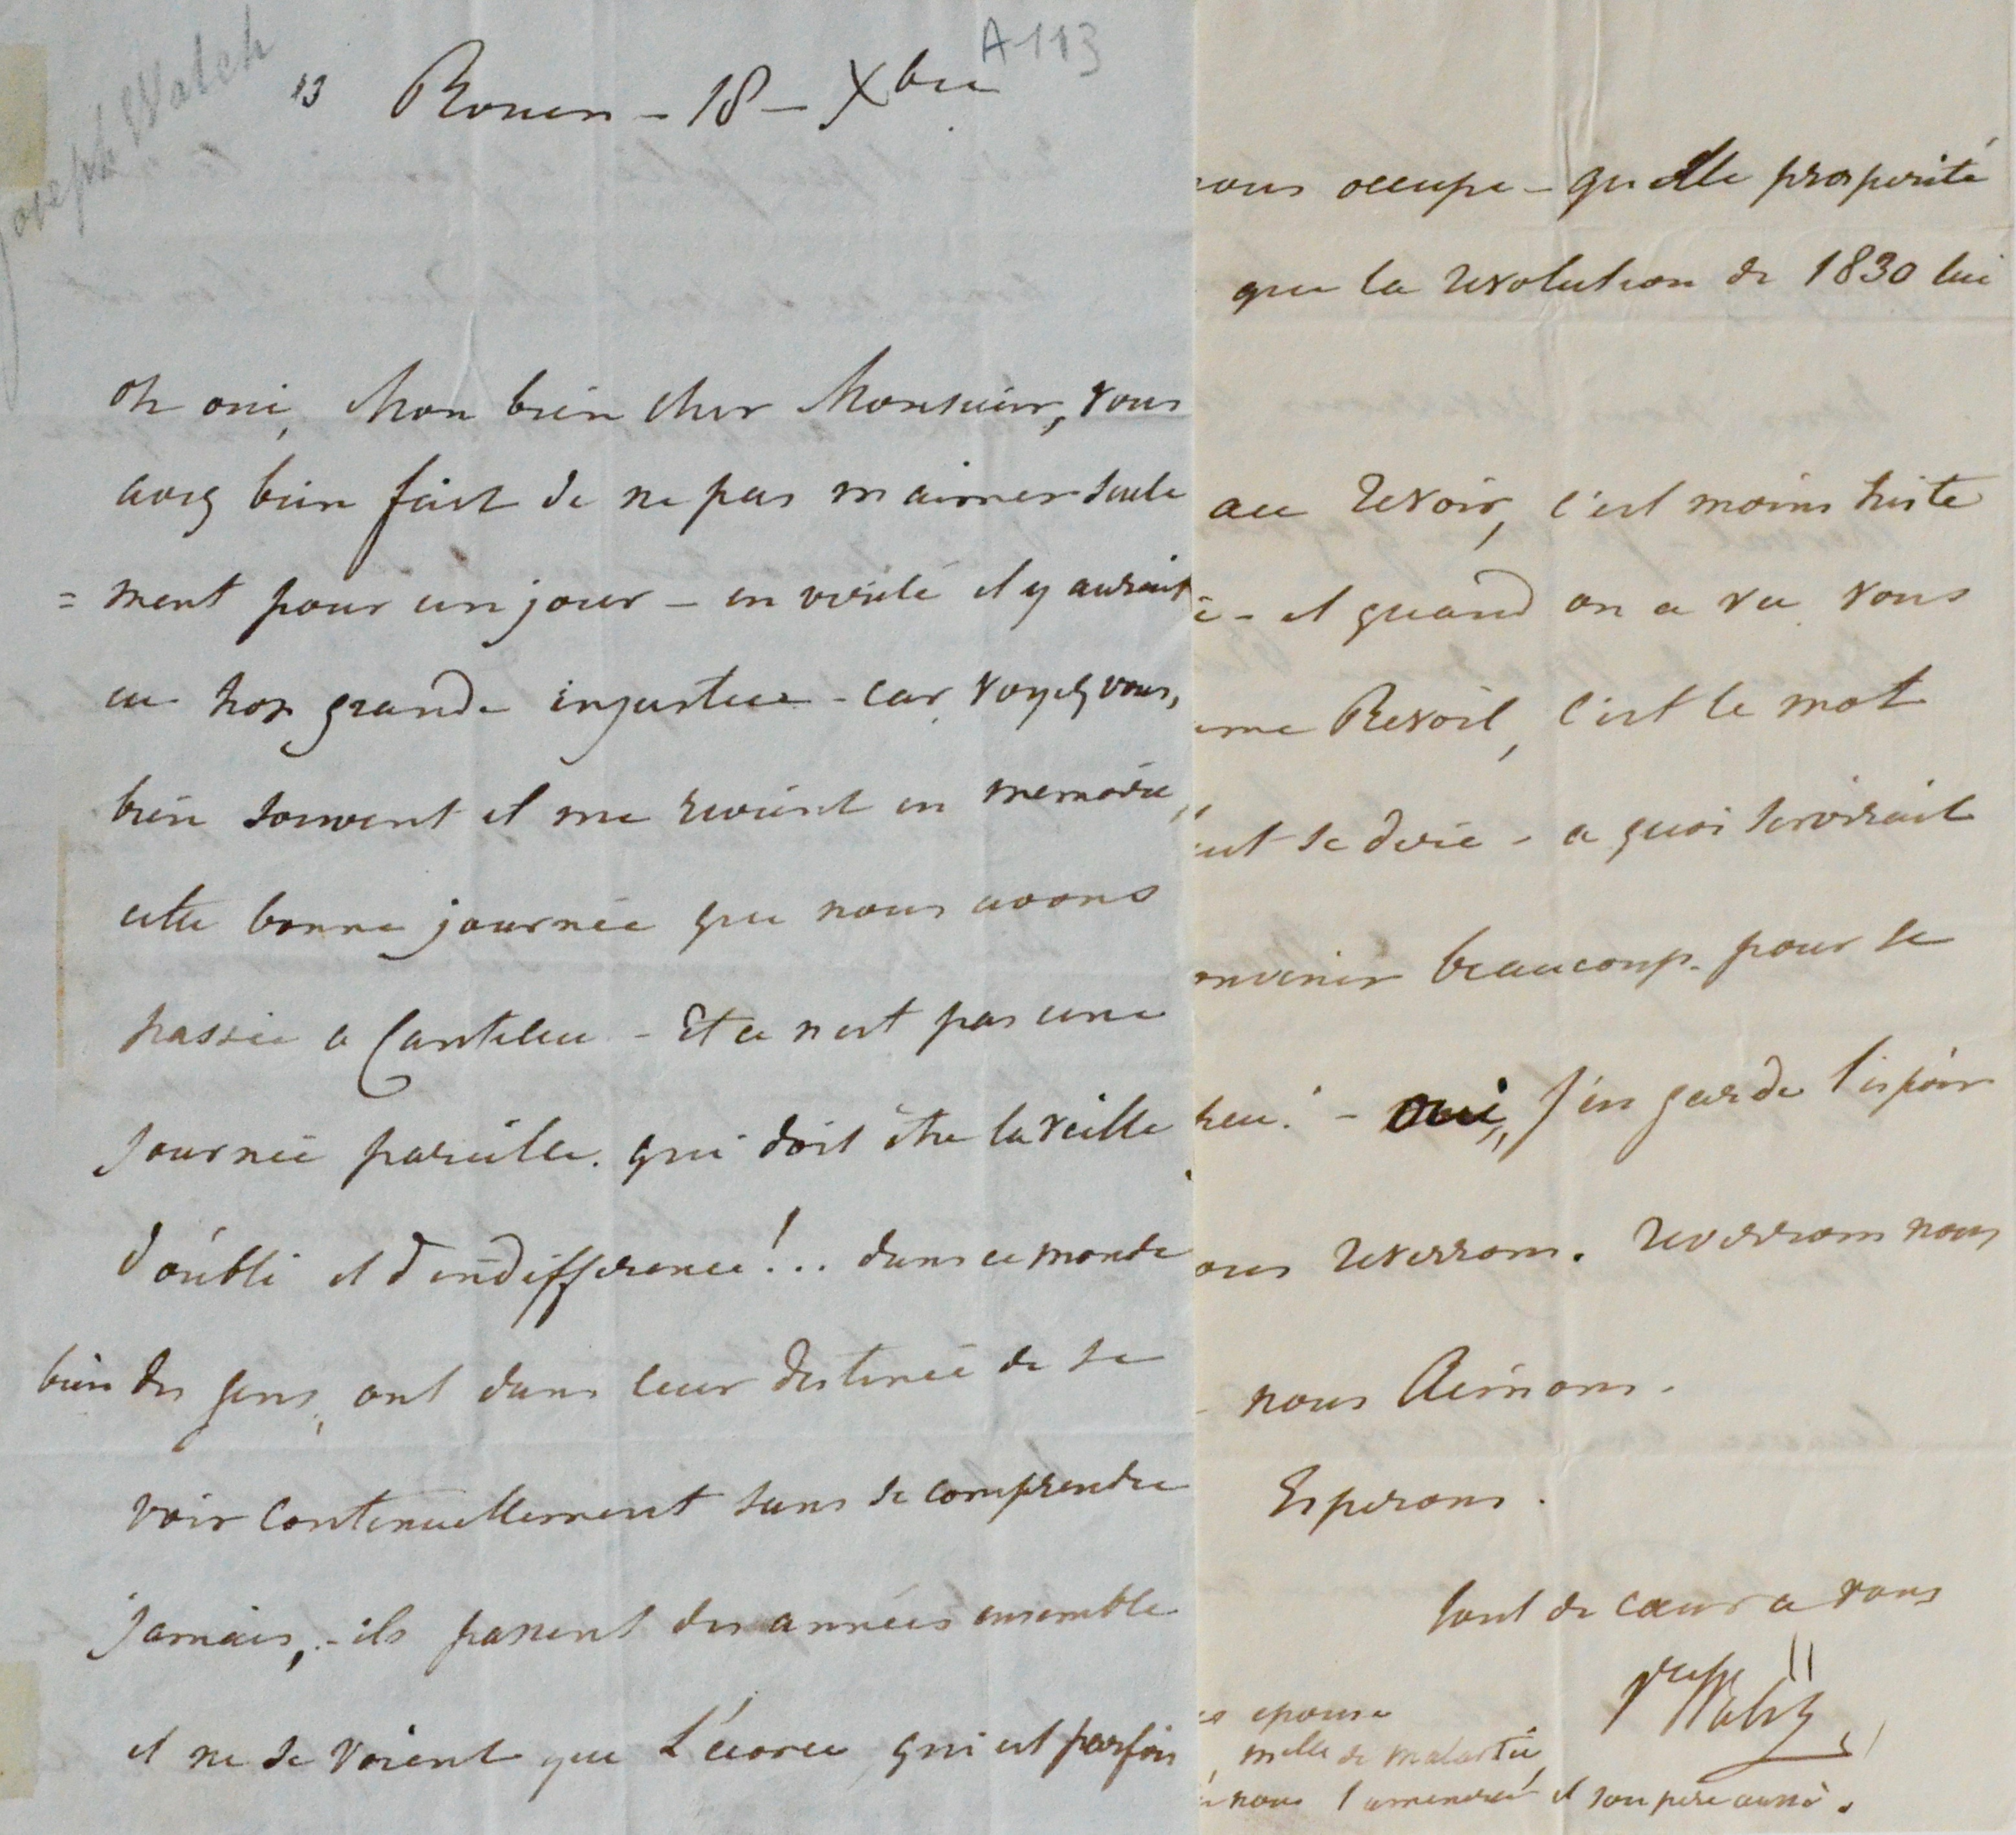 Joseph Walsh
A 113
13 Rouen - 18 - Xbre
Oh oui, Mon bien cher Monsieur, vous
avez bien fait de ne pas m aimer seule
= ment pour un jour - en verité il y aurait
eu trop grande injustice - car voyez vous,
bien souvent il me revient en memoire,
cette bonne journée que nous avons
passée a Canteleu - Et ce n est pas une
journée pareille. qui doit être la veille
d oubli et d indifference!... dans ce monde
bien des gens, ont dans leur destinée de se
voir continuellement sans se comprendre
jamais, - ils passent des années ensemble
et ne se voient que L'écorce qui est parfois
vous occupe - quelle prosperité
que la revolution de 1830 lui
au revoir, c'est moins triste
- et quand on a vu vous
me Revoil, c'est le mot
ut se dire - a quoi servirait
onvenir beaucoup. pour se
lieu! - oui, J'en garde l'espoir
ous reverrons. reverrons nous
- nous Aimons.
Esperons.
tout de cœur a vous
Walsh
epouse
melle de malartie
nous l amenerai et son pere aussi.